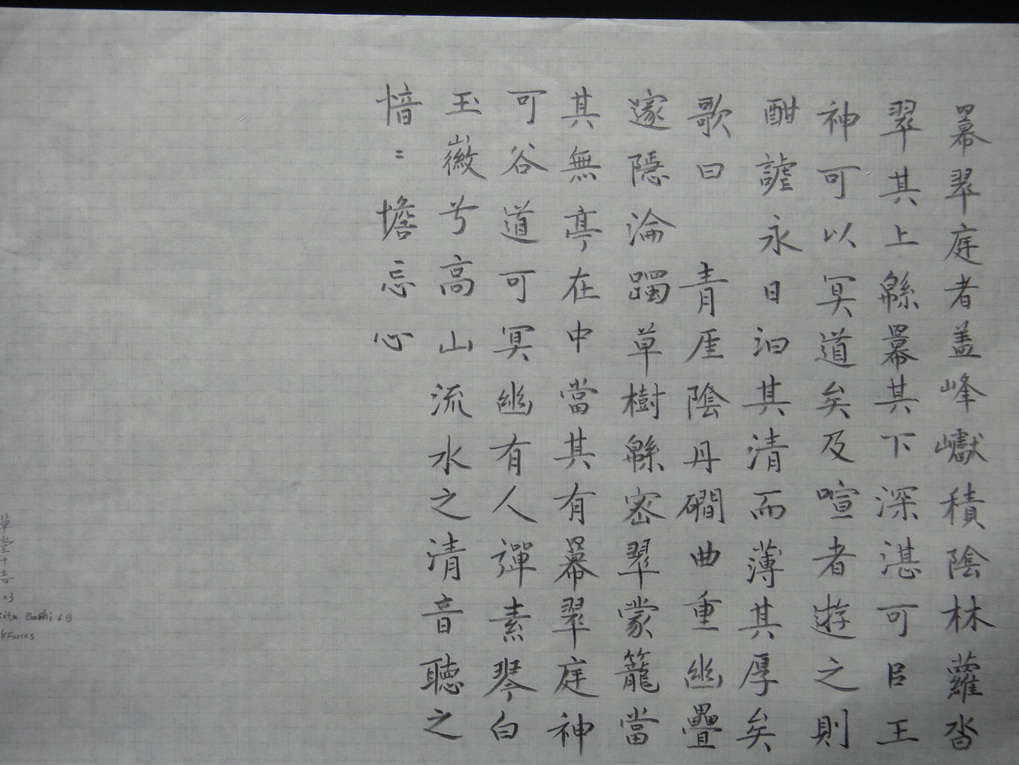 羃翠庭者盖峰巘積陰林蘿沓
翠其上緜羃其下深湛可㠯王
神可以冥道矣及喧者遊之則
酣謔永日汩其清而薄其厚矣
歌曰　青厓陰丹磵曲重幽疊
邃隱淪躅草樹緜密翠蒙籠當
其無亭在中當其有羃翠庭神
可谷道可冥幽有人彈素琴白
玉徽兮高山流水之清音聽之
愔〻憺忘心
草堂十志
Boshi 6B